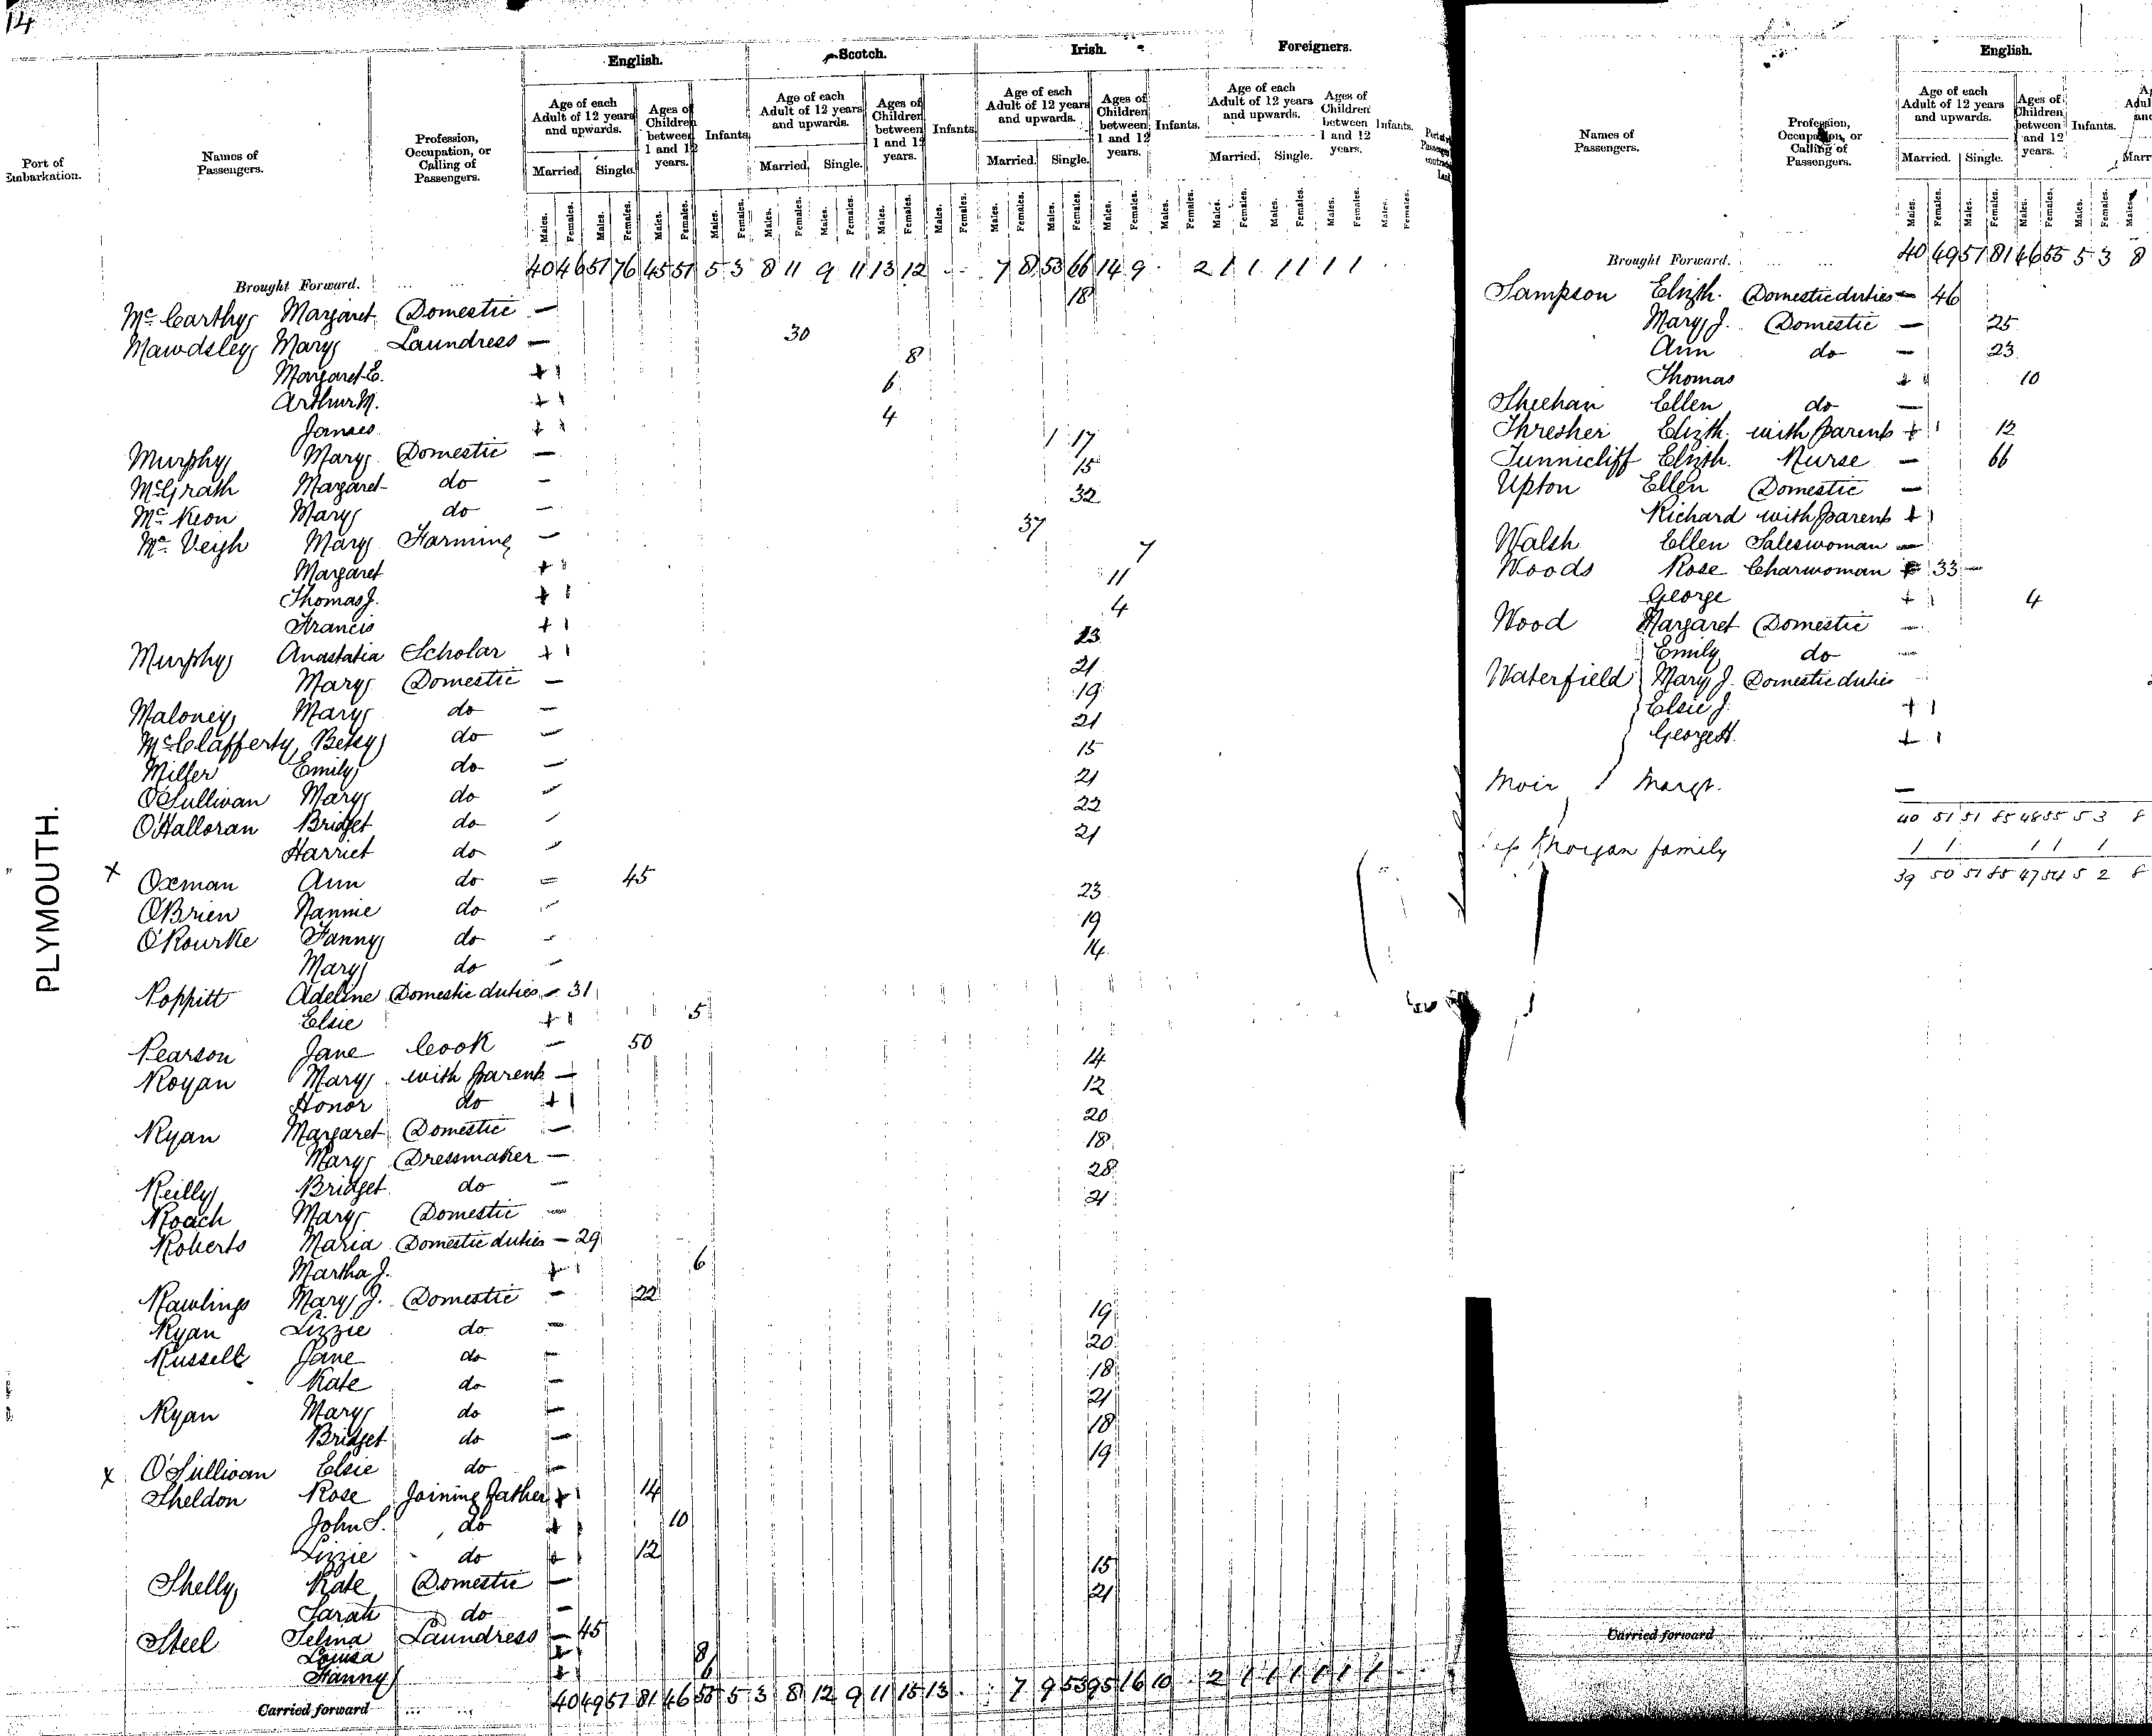 14
English. Scotch. Irish. Foreigners.
Port of Embarkation. Names of Passengers. Profession, Occupation, or Calling of Passengers. Age of each Adult of 12 years and upwards. Ages of Children between 1 and 12 years. Infants. Age of each Adult of 12 years and upwards. Ages of Children between 1 and 12 years. Infants. Age of each Adult of 12 years and upwards. Ages of Children between 1 and 12 years. Infants. Age of each Adult of 12 years and upwards. Ages of Children between 1 and 12 years. Infants.
Married. Single. Married. Single. Married. Single. Married. Single.
Males. Females. Males. Females. Males. Females. Males. Females. Males. Females. Males. Females. Males. Females. Males. Females. Males. Females. Males. Females. Males. Females. Males. Females. Males. Females. Males. Females. Males. Females. Males. Females.
Brought Forward. 40 46 51 76 45 51 5 3 8 11 9 11 13 12 7 8 53 66 14 9 2 1 1 1 1 1 1
PLYMOUTH.
McCarthy Margaret Domestic — 18
Mawdsley Mary Laundress — 30
Margaret E. + 1 8
Arthur M. + 1 6
James + 1 4
Murphy Mary Domestic — 17
McGrath Margaret do — 15
McKeon Mary do — 32
McVeigh Mary Farming — 37
Margaret + 1 7
Thomas J. + 1 11
Francis + 1 4
Murphy Anastatia Scholar + 1 13
Mary Domestic — 21
Maloney Mary do — 19
McClafferty Betsy do — 21
Miller Emily do — 15
O'Sullivan Mary do — 21
O'Halloran Bridget do — 22
Harriet do — 21
x Oxman Ann do = 45
O'Brien Nannie do — 23
O'Rourke Fanny do — 19
Mary do — 14
Poppitt Adeline Domestic duties — 31
Elsie + 1 5
Pearson Jane Cook — 50
Royan Mary with parents — 14
Honor do + 1 12
Ryan Margaret Domestic — 20
Mary Dressmaker — 18
Reilly Bridget do — 28
Roach Mary Domestic — 21
Roberts Maria Domestic duties — 29
Martha J. + 1 6
Rawlings Mary J. Domestic — 22
Ryan Lizzie do — 19
Russell Jane do — 20
Kate do — 18
Ryan Mary do — 21
Bridget do — 18
x O'Sullivan Elsie do — 19
Sheldon Rose Joining father + 1 14
John S. do + 10
Lizzie do + 12
Shelly Kate Domestic — 15
Sarah do — 21
Steel Selina Laundress — 45
Louisa + 1 8
Fanny + 1 6
Carried forward 40 49 51 81 46 55 5 3 8 12 9 11 15 13 7 9 53 95 16 10 2 1 1 1 1 1 1
English.
Names of Passengers. Profession, Occupation, or Calling of Passengers. Age of each Adult of 12 years and upwards. Ages of Children between 1 and 12 years. Infants.
Married. Single.
Males. Females. Males. Females. Males. Females. Males. Females. Males.
Brought Forward. 40 49 51 81 46 55 5 3 8
Sampson Elizth. Domestic duties — 46
Mary J. Domestic — 25
Ann do — 23
Thomas + 1 10
Sheehan Ellen do —
Thresher Elizth. with parents + 1 12
Tunnicliff Elizth. Nurse — 66
Upton Ellen Domestic —
Richard with parents + 1
Walsh Ellen Saleswoman —
Woods Rose Charwoman 33
George + 1 4
Wood Margaret Domestic —
Emily do —
Waterfield Mary J. Domestic duties
Elsie J. + 1
George H. + 1
Moir Margt. —
40 51 51 85 48 55 5 3 8
family 1 1 1 1 1
39 50 51 85 47 54 5 2 8
Carried forward